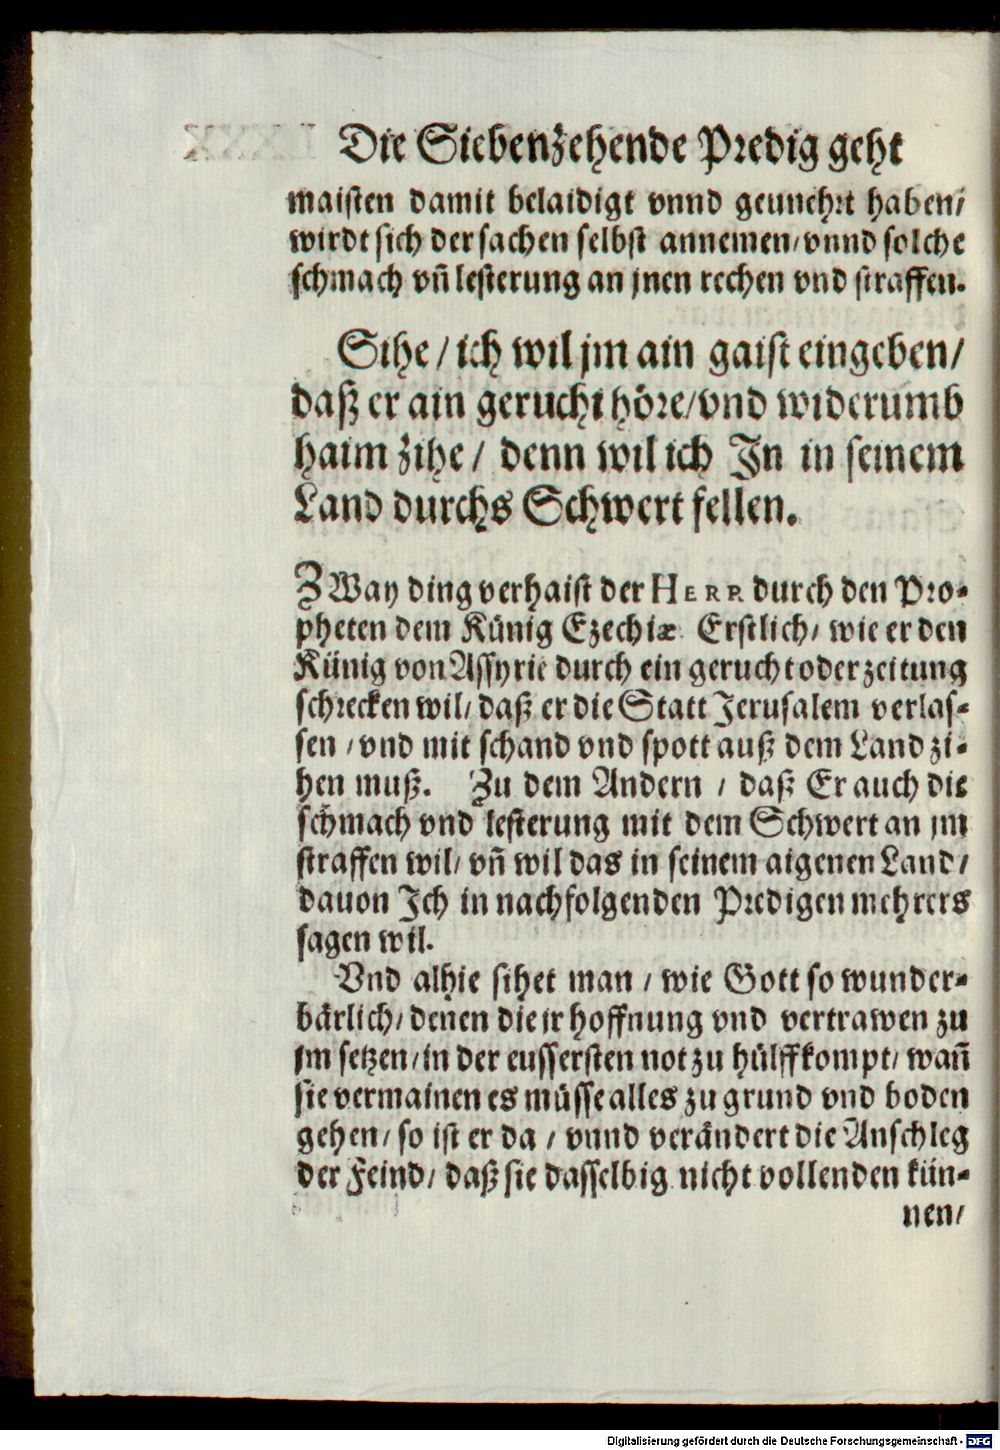 Die Siebenzehende Predig geht
maisten damit belaidigt vnnd geunehrt haben/
wirdt sich der sachen selbst annemen/vnnd solche
schmach vñ lesterung an jnen rechen vnd straffen.
Sihe/ich wil jm ain gaist eingeben/
daß er ain gerucht höre/vnd widerumb
haim zihe/ denn wil ich In in seinem
Land durchs Schwert fellen.
ZWay ding verhaist der HERR durch den Pro-
pheten dem Künig Ezechiæ Erstlich/ wie er den
Künig von Assyrie durch ein gerucht oder zeitung
schrecken wil/ daß er die Statt Jerusalem verlas-
sen /vnd mit schand vnd spott auß dem Land zi-
hen muß. Zu dem Andern / daß Er auch die
schmach vnd lesterung mit dem Schwert an jm
straffen wil/ vñ wil das in seinem aigenen Land/
dauon Ich in nachfolgenden Predigen mehrers
sagen wil.
Vnd alhie sihet man / wie Gott so wunder-
bärlich/ denen die jr hoffnung vnd vertrawen zu
jm setzen/in der eussersten not zu hülff kompt/ wañ
sie vermainen es müsse alles zu grund vnd boden
gehen/ so ist er da / vnnd verändert die Anschleg
der Feind/ daß sie dasselbig nicht vollenden kün-
nen/
Digitalisierung gefördert durch die Deutsche Forschungsgemeinschaft - DFG